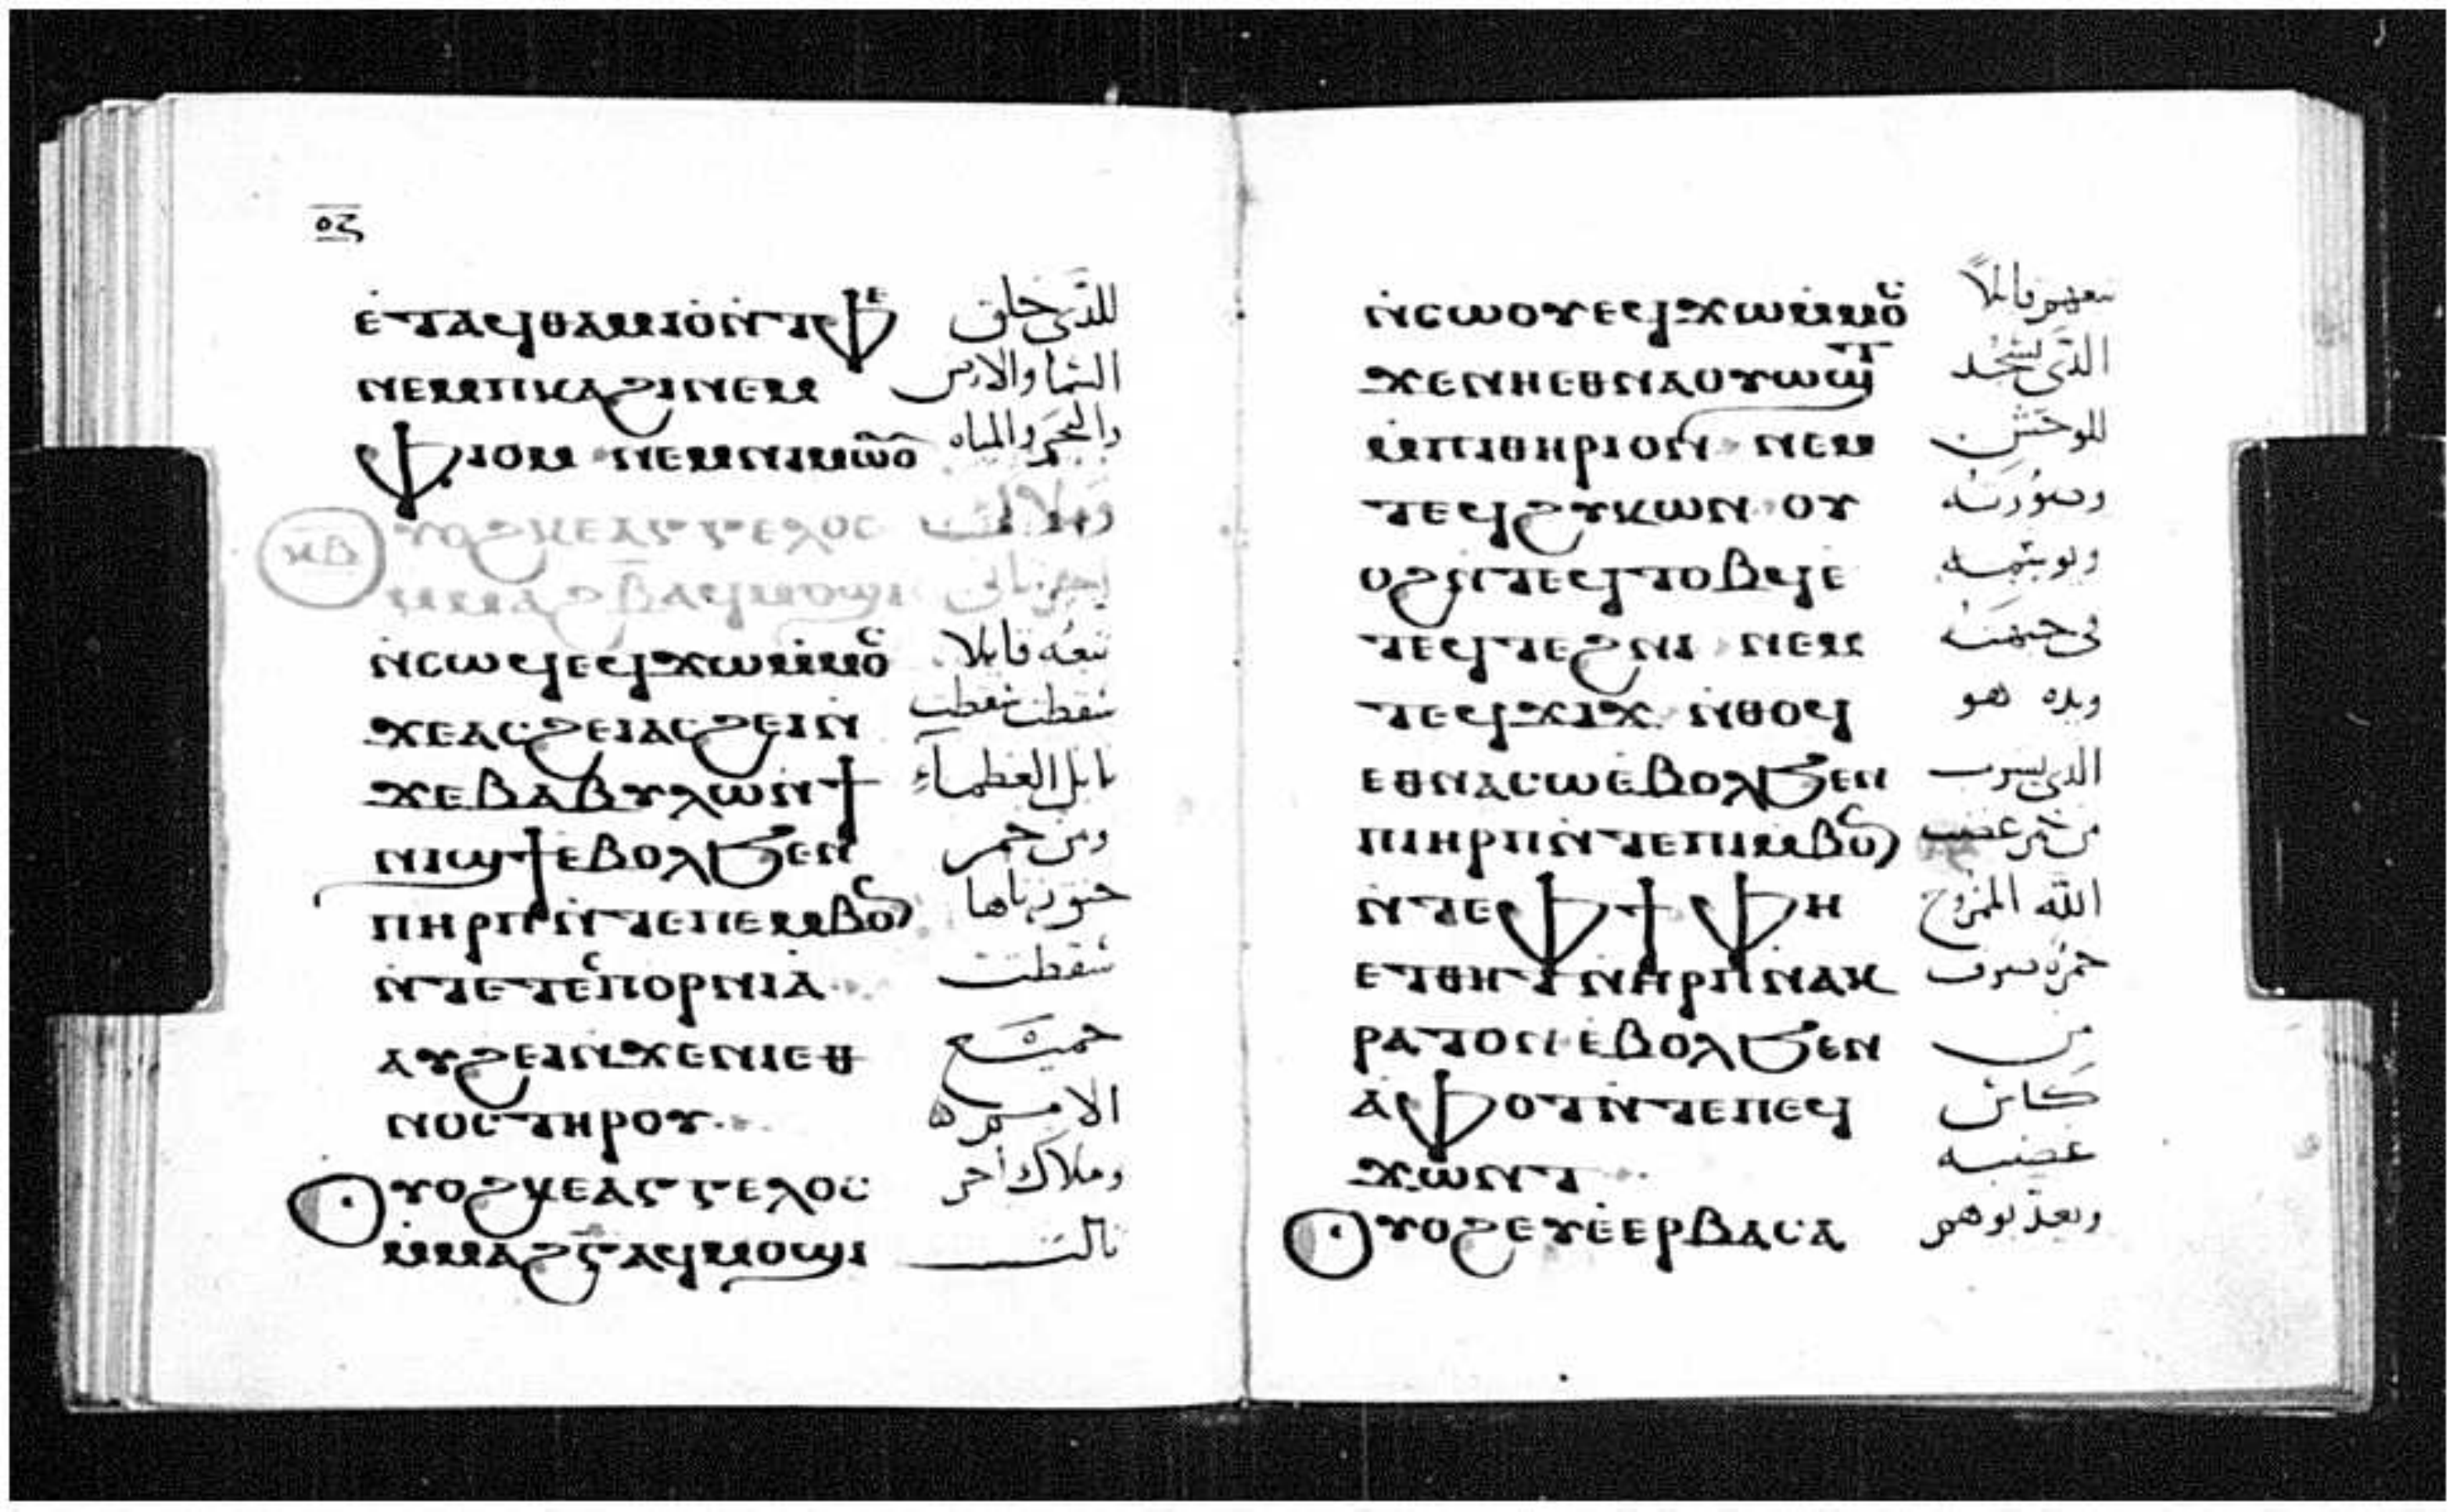 ⲟⲍ
ⲉⲧⲁϥⲑⲁⲙⲓⲟⲛⲧⲫⲉ للذى خلق
ⲛⲉⲙⲡⲕⲁϩⲓⲛⲉⲙ السما والارض
ⲫⲓⲟⲙ ⲛⲉⲙⲛⲓⲙⲱⲟ والبحر والمياه
ⲟⲩⲟϩⲕⲉⲁⲅⲅⲉⲗⲟⲥ
ⲕⲃ
ⲙⲙⲁϩⲃ̅ⲁϥⲙⲟϣⲓ
ⲛⲥⲱϥⲉϥϫⲱⲙⲙⲟⲥ تبعه قايلا
ϫⲉⲁⲥϩⲉⲓⲁⲥϩⲉⲓⲛ سقطت سقطت
ϫⲉⲃⲁⲃⲩⲗⲱⲛϯ بابل العظماء
ⲛⲓϣϯⲉⲃⲟⲗϧⲉⲛ ومن خمر
ⲡⲏⲣⲡⲛⲧⲉⲡⲉⲙⲃⲟⲛ
ⲛⲧⲉⲧⲉⲥⲡⲟⲣⲛⲓⲁ سقطت
ⲁⲩϩⲉⲓⲛϫⲉⲛⲓⲉⲑ جميع
ⲛⲟⲥⲧⲏⲣⲟⲩ الامم
ⲟⲩⲟϩⲕⲉⲁⲅⲅⲉⲗⲟⲥ وملاك اخر
ⲙⲙⲁϩⲅ̅ⲁϥⲙⲟϣⲓ تالت
ⲛⲥⲱⲟⲩⲉϥϫⲱⲙⲙⲟⲥ تبعهم قايلاً
ϫⲉⲛⲏⲉⲑⲛⲁⲟⲩⲱϣⲧ الذى يسجد
ⲙⲡⲓⲑⲏⲣⲓⲟⲛ ⲛⲉⲙ للوحش
ⲧⲉϥϩⲩⲕⲱⲛ ⲟⲩ وصورته
ⲟϩⲛⲧⲉϥⲧⲟⲃϥⲉ
ⲧⲉϥⲧⲉϩⲛⲓ ⲛⲉⲙ فى جبهته
ⲧⲉϥϫⲓϫ ⲛⲑⲟϥ ويده هو
ⲉⲑⲛⲁⲥⲱⲉⲃⲟⲗϧⲉⲛ الذى يشرب
ⲡⲓⲏⲣⲡⲛⲧⲉⲡⲓⲙⲃⲟⲛ من خمر غضب
ⲛⲧⲉⲫϯⲫⲏ الله الممزوج
ⲉⲧⲑⲏⲧⲛⲏⲣⲡⲛⲁⲕ
ⲣⲁⲧⲟⲛⲉⲃⲟⲗϧⲉⲛ من
ⲁⲫⲟⲧⲛⲧⲉⲡⲉϥ كاس
ϫⲱⲛⲧ غضبه
ⲟⲩⲟϩⲉⲩⲉⲉⲣⲃⲁⲥⲁ ويعذبوهم